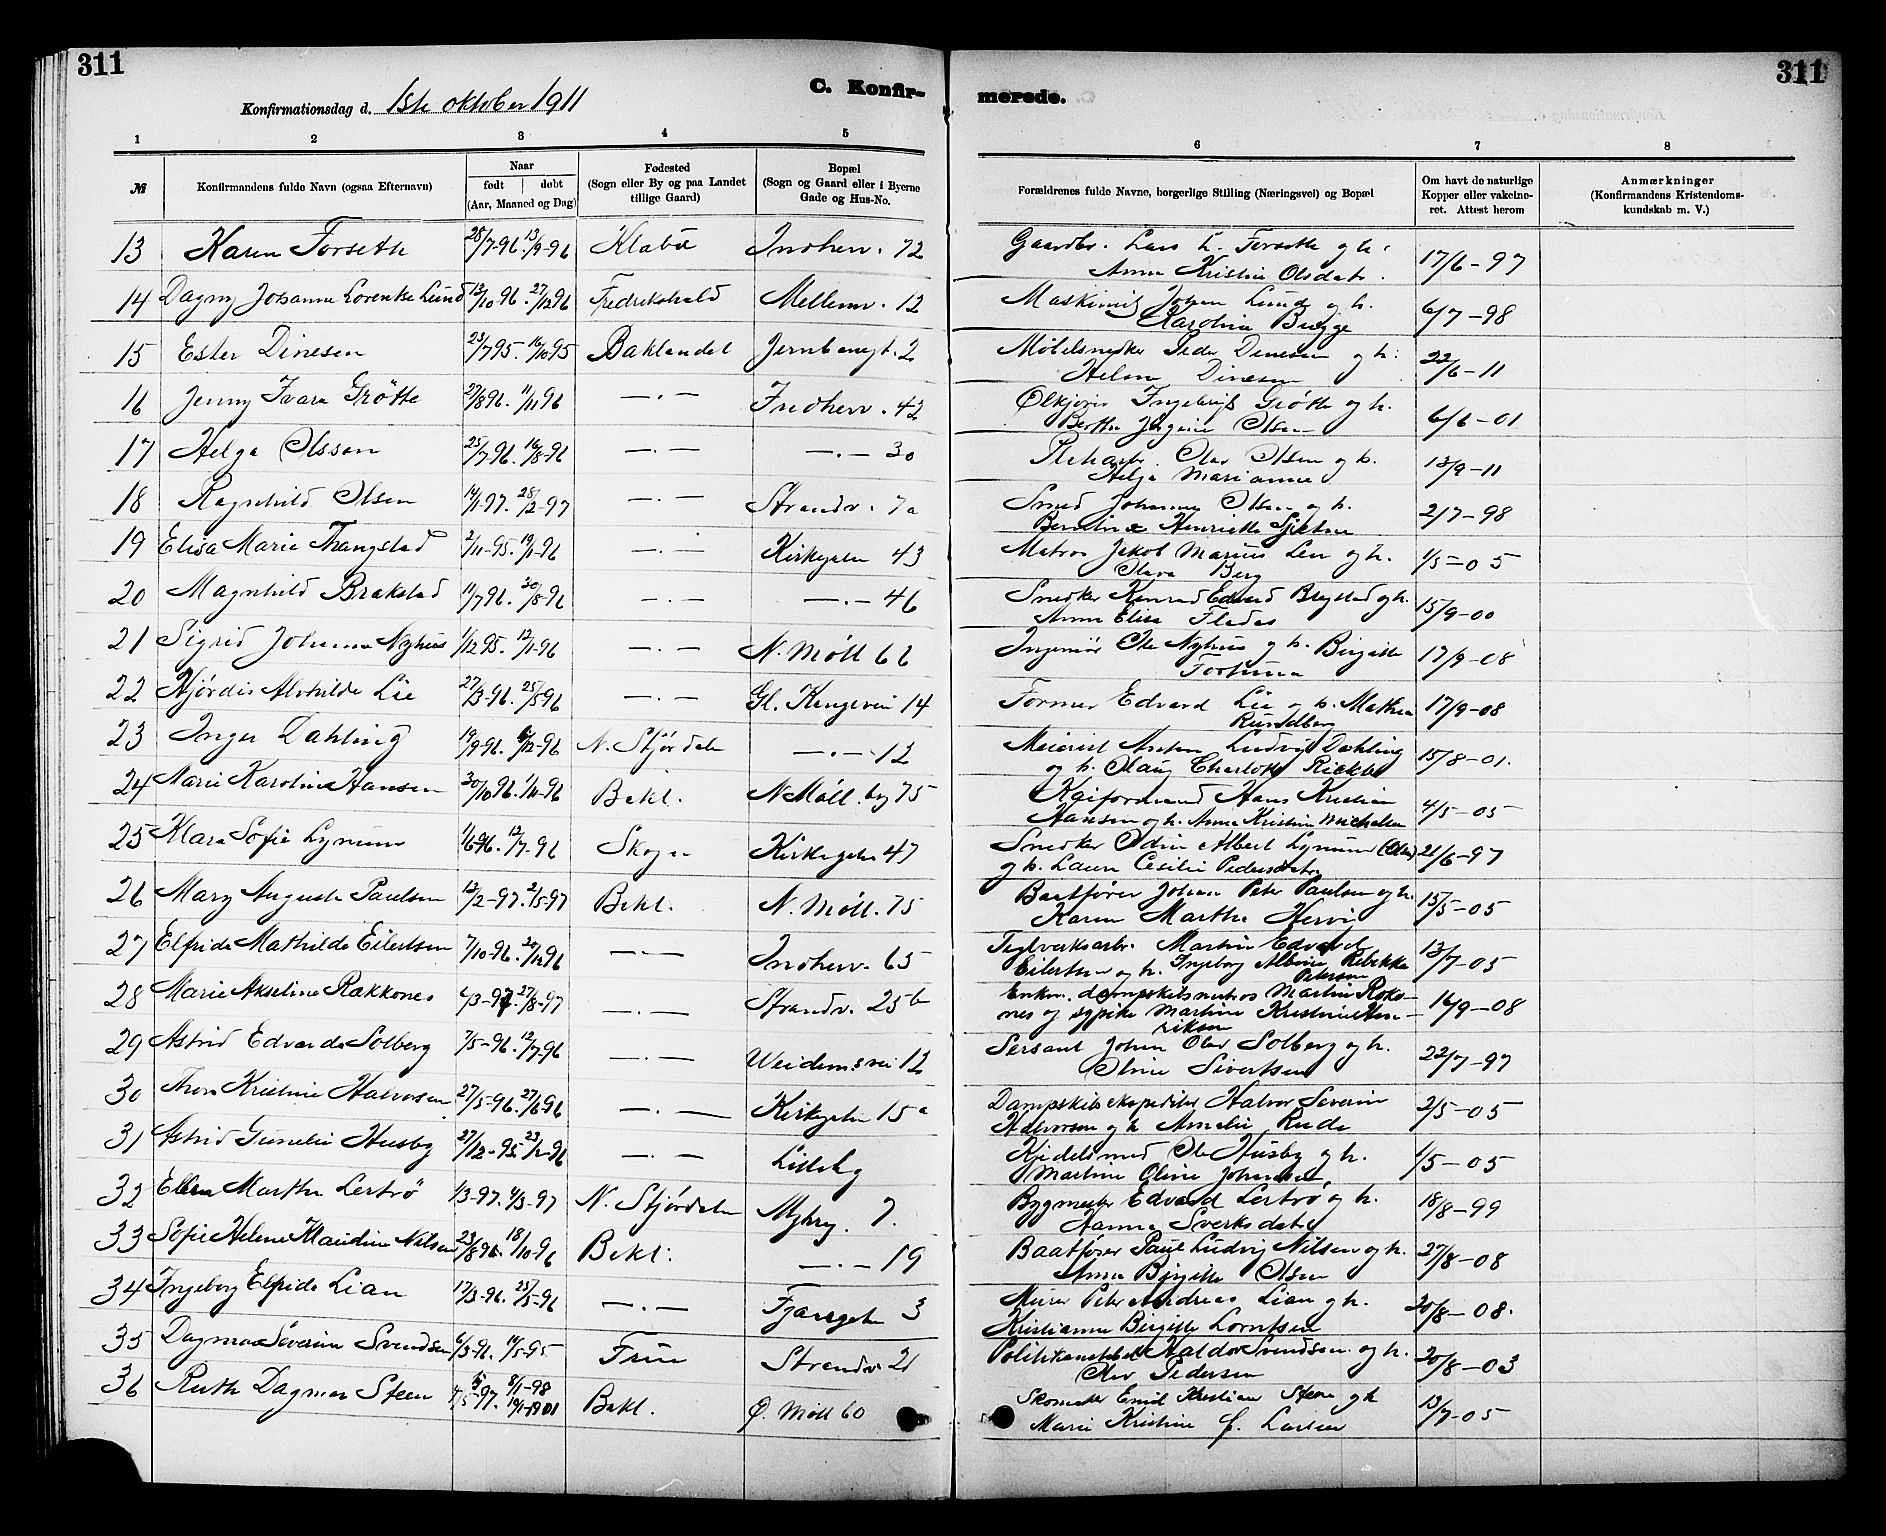 311
C. Konfir-
Konfirmationsdag d. 1ste oktober 1911
1 2 3 4 5
№ Konfirmandens fulde Navn (ogsaa Efternavn) Naar født døbt (Aar, Maaned og Dag) Fødested (Sogn eller By og paa Landet tillige Gaard) Bopæl (Sogn og Gaard eller i Byerne Gade og Hus-No.
13 Karen Forseth 28/7-96. 13/9-96 Klæbu Indherv. 72
14 Dagny Johanne Lorentse Lund 12/10 96. 27/12 96 Fredrikshald Mellemv. 12
15 Ester Dinesen 23/7 95. 16/10 95 Baklandet Jernbanegt. 2
16 Jenny Ivara Grötte 27/8 96. 11/11 96 —.— Indherv. 42
17 Helga Olsson 25/7-96. 16/8-96 —.— —.— 30
18 Ragnhild Olsen 14/1-97. 28/2-97 —.— Strandv. 7a
19 Elisa Marie Trangstad 2/11-95. 19/1-96 —.— Kirkegaten 43
20 Magnhild Brakstad 11/7 96. 30/8-96 —.— —.— 46
21 Sigrid Johanne Nyhus 1/12 95. 12/1-96 —.— N. Möll 66
22 Hjördis Alvhilde Lie 27/3-96. 25/5-96 —.— Gl. Kongevei 14
23 Inger Dahling 19/9-96. 6/12-96 N. Stjördalen —.— 12
24 Marie Karoline Hansen 30/10 96. 1/11-96 Bakl. N. Möll.bg 75
25 Klara Sofie Lynum 1/6-96. 12/7-96 Skogn Kirkegaten 47
26 Mary Auguste Paulsen 12/2-97. 2/5-97 Bakl. N. Möll. 75
27 Elfrida Mathilde Eilertsen 7/10-96. 20/12 96 —.— Indherv. 65
28 Marie Akseline Rækkones 6/3-97. 27/8-97 —.— Strandv. 25b
29 Astrid Edvarda Solberg 7/5-96. 12/7-96 —.— Weidemsvei 12
30 Thora Kristine Halvorsen 27/5-96. 27/6-96 —.— Kirkegaten 15a
31 Astrid Gunelie Husby 27/12-95. 23/2-96 —.— Lilleby
32 Ellen Martha Lertrö 1/3-97. 4/3-97 N. Stjördalen Myhrg. 7.
33 Sofie Helene Klaudine Nilsen 23/8-96. 18/10-96 Bakl. —.— 19
34 Ingeborg Elfrida Lian 17/3-96. 25/5-96 —.— Fjæregaten 3
35 Dagmar Severine Svendsen 6/3-96. 14/5-95 Frue Strandv. 21
36 Ruth Dagmar Steen 8/1-98 Bakl. Ø. Möll 60
311
merede.
6 7 8
Forældrenes fulde Navne, borgerlige Stilling (Næringsvei) og Bopæl Om havt de naturlige Kopper eller vakcineret. Attest herom Anmærkninger (Konfirmandens Kristendomskundskab m. V.)
Gaardbr. Lars L. Forseth og h.
Anna Kristine Olsdatr. 17/6-97
Maskinist Johan Lund og h.
Karoline Bugge 6/7-98
Møbelsnedker Peder Dinesen og h.
Helene Dinesen 22/6-11
Ølkjører Ingebrigt Grøtte og h.
Berthe Jørgine Olsen 6/6-01
Olav Olsen og h.
Helga Marianne 13/9-11
Smed Johannes Olsen og h.
Henriette 2/7-98
Matros Jakob Marius Lein og h.
Olava Berg 1/5-05
Snedker Konrad Edvard Brakstad og h.
Anna Elisa 15/9-00
Ingeniör Ole Nyhus og h. Birgitte
17/9-08
Former Edvard Lie og h. Mathea
Rundberg 17/9-08
Meierist Anton Ludvig Dahling
og h. Olaug Charlotte 15/8-01.
Kaiformand Hans Kristian
Hansen og h. Anna Kristine Michelsen 4/5-05
Snedker Odin Albert Lynum
og h. Laura Cecilie Pedersdatr. 21/6-97
Baatfører Johan Peter Paulsen og h.
Karen Martha 15/5-05
Teglverksarb. Martin Edvard
Eilertsen og h. Ingeborg Albine Rebekka
Petersen 13/7-05
Enkem. dampskibsmatros Martin Rækkones
og pike Martine Kristine Henriksen 16/9-08
Sersant Johan Olav Solberg og h.
Oline Sivertsen 22/7-97
Dampskibsekspeditør Halvor Severin
Halvorsen og h. Amalie Rude 2/5-05
Kjedelsmed Ole Husby og h.
Martine Oline Johansen 1/5-05
Bygmester Edvard Lertrö og h.
Hanna Sverksdatr. 18/8-99
Baatfører Paul Ludvig Nilsen og h.
Anna Birgitte Olsen 27/8-08
Murer Peter Andreas Lian og h.
Kristianne Bergitte Lorntsen 20/8-08.
Politikonstabel Haldor Svendsen og h.
Pedersen 20/8-03
Skomaker Emil Kristian Steen og h.
Marie Kristine f. Larsen 13/7-05